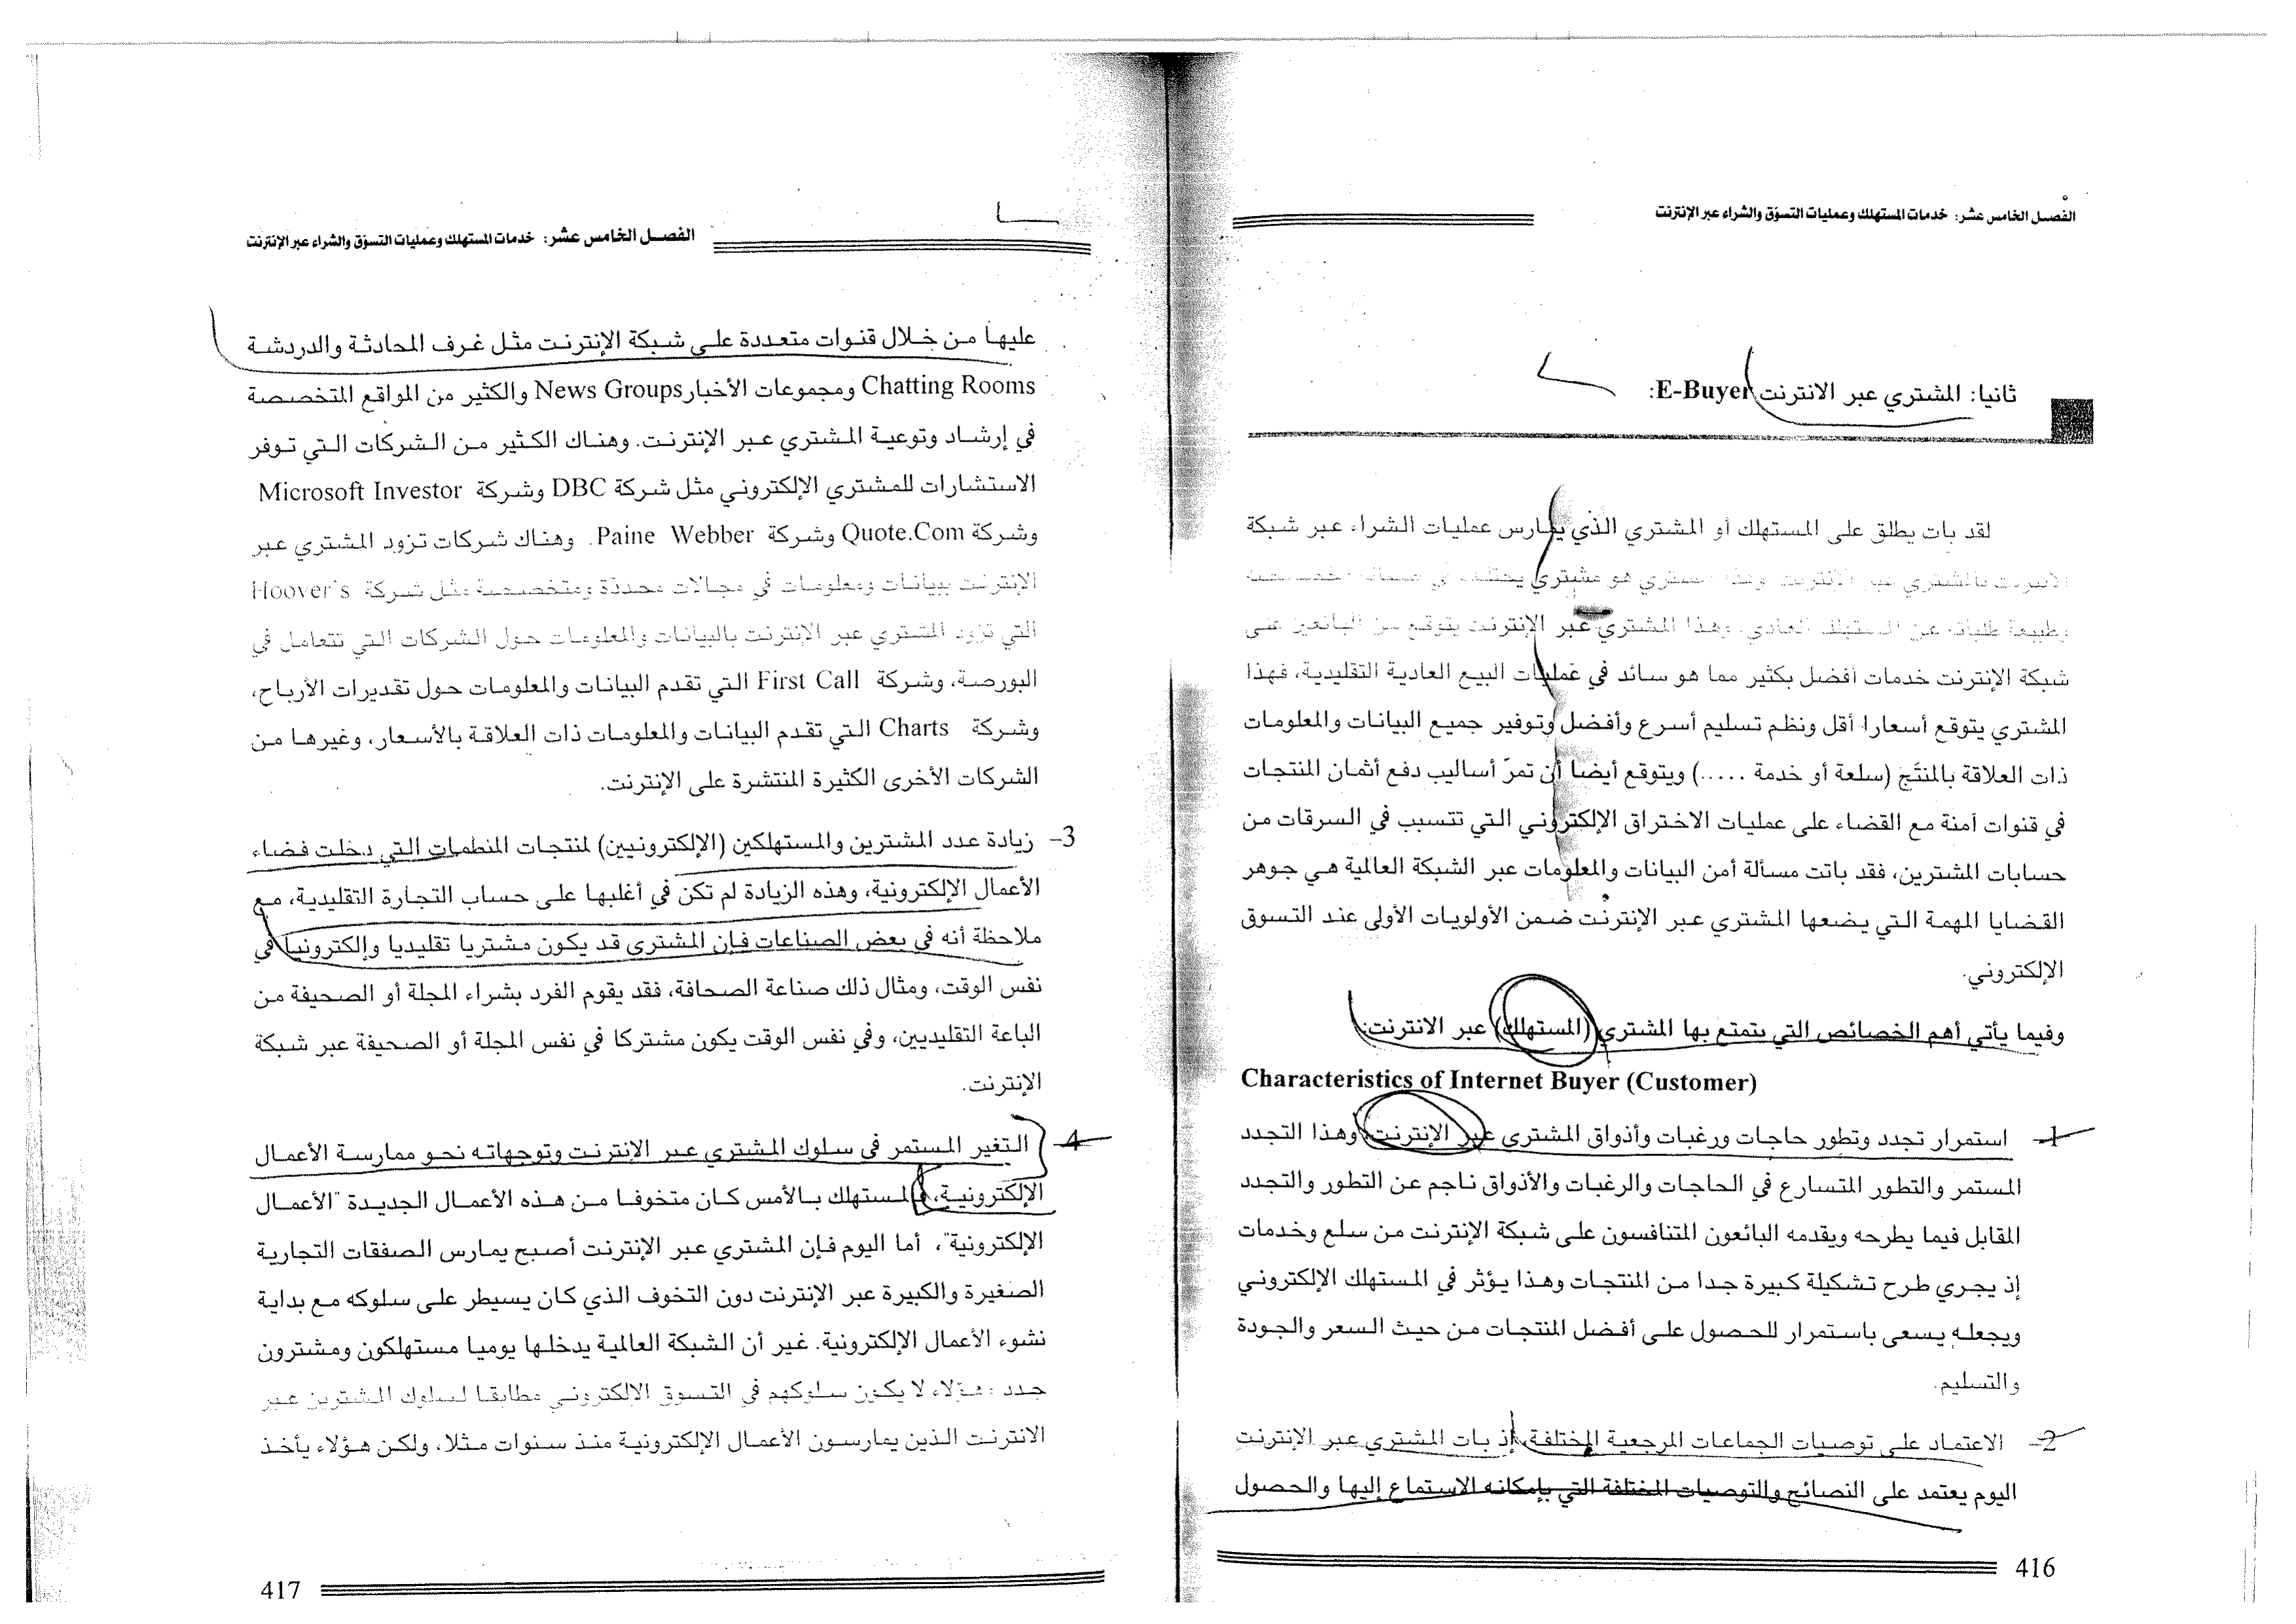 الفصل الخامس عشر: خدمات المستهلك وعمليات التسوّق والشراء عبر الإنترنت
ثانيا: المشتري عبر الانترنت E-Buyer:
لقد بات يطلق على المستهلك أو المشتري الذي يمارس عمليات الشراء عبر شبكة
الانترنت بالمشتري عبر الإنترنت وهذا المشتري هو مشتري يختلف في
وطبيعة طلباته عن المستهلك العادي، وهذا المشتري عبر الإنترنت يتوقع من البائعين على
شبكة الإنترنت خدمات أفضل بكثير مما هو سائد في عمليات البيع العادية التقليدية، فهذا
المشتري يتوقع أسعارا أقل ونظم تسليم أسرع وأفضل وتوفير جميع البيانات والمعلومات
ذات العلاقة بالمنتَج (سلعة أو خدمة .....) ويتوقع أيضا أن تمرّ أساليب دفع أثمان المنتجات
في قنوات آمنة مع القضاء على عمليات الاختراق الإلكتروني التي تتسبب في السرقات من
حسابات المشترين، فقد باتت مسألة أمن البيانات والمعلومات عبر الشبكة العالمية هي جوهر
القضايا المهمة التي يضعها المشتري عبر الإنترنت ضمن الأولويات الأولى عند التسوق
الإلكتروني.
وفيما يأتي أهم الخصائص التي يتمتع بها المشتري (المستهلك) عبر الانترنت:
Characteristics of Internet Buyer (Customer)
1- استمرار تجدد وتطور حاجات ورغبات وأذواق المشتري عبر الإنترنت، وهذا التجدد
المستمر والتطور المتسارع في الحاجات والرغبات والأذواق ناجم عن التطور والتجدد
المقابل فيما يطرحه ويقدمه البائعون المتنافسون على شبكة الإنترنت من سلع وخدمات
إذ يجري طرح تشكيلة كبيرة جدا من المنتجات وهذا يؤثر في المستهلك الإلكتروني
ويجعله يسعى باستمرار للحصول على أفضل المنتجات من حيث السعر والجودة
والتسليم.
2- الاعتماد على توصيات الجماعات المرجعية المختلفة، إذ بات المشتري عبر الإنترنت
اليوم يعتمد على النصائح والتوصيات المختلفة التي بإمكانه الاستماع إليها والحصول
416
الفصل الخامس عشر: خدمات المستهلك وعمليات التسوّق والشراء عبر الإنترنت
عليها من خلال قنوات متعددة على شبكة الإنترنت مثل غرف المحادثة والدردشة
Chatting Rooms ومجموعات الأخبار News Groups والكثير من المواقع المتخصصة
في إرشاد وتوعية المشتري عبر الإنترنت. وهناك الكثير من الشركات التي توفر
الاستشارات للمشتري الإلكتروني مثل شركة DBC وشركة Microsoft Investor
وشركة Quote.Com وشركة Paine Webber. وهناك شركات تزود المشتري عبر
الإنترنت ببيانات ومعلومات في مجالات محددة ومتخصصة مثل شركة Hoover's
التي تزود المشتري عبر الإنترنت بالبيانات والمعلومات حول الشركات التي تتعامل في
البورصة، وشركة First Call التي تقدم البيانات والمعلومات حول تقديرات الأرباح،
وشركة Charts التي تقدم البيانات والمعلومات ذات العلاقة بالأسعار، وغيرها من
الشركات الأخرى الكثيرة المنتشرة على الإنترنت.
3- زيادة عدد المشترين والمستهلكين (الإلكترونيين) لمنتجات المنظمات التي دخلت فضاء
الأعمال الإلكترونية، وهذه الزيادة لم تكن في أغلبها على حساب التجارة التقليدية، مع
ملاحظة أنه في بعض الصناعات فإن المشتري قد يكون مشتريا تقليديا وإلكترونيا في
نفس الوقت، ومثال ذلك صناعة الصحافة، فقد يقوم الفرد بشراء المجلة أو الصحيفة من
الباعة التقليديين، وفي نفس الوقت يكون مشتركا في نفس المجلة أو الصحيفة عبر شبكة
الإنترنت.
4- التغير المستمر في سلوك المشتري عبر الإنترنت وتوجهاته نحو ممارسة الأعمال
الإلكترونية، فالمستهلك بالأمس كان متخوفا من هذه الأعمال الجديدة "الأعمال
الإلكترونية"، أما اليوم فإن المشتري عبر الإنترنت أصبح يمارس الصفقات التجارية
الصغيرة والكبيرة عبر الإنترنت دون التخوف الذي كان يسيطر على سلوكه مع بداية
نشوء الأعمال الإلكترونية. غير أن الشبكة العالمية يدخلها يوميا مستهلكون ومشترون
جدد، هؤلاء لا يكون سلوكهم في التسوق الإلكتروني مطابقا لسلوك المشترين عبر
الانترنت الذين يمارسون الأعمال الإلكترونية منذ سنوات مثلا، ولكن هؤلاء يأخذ
417